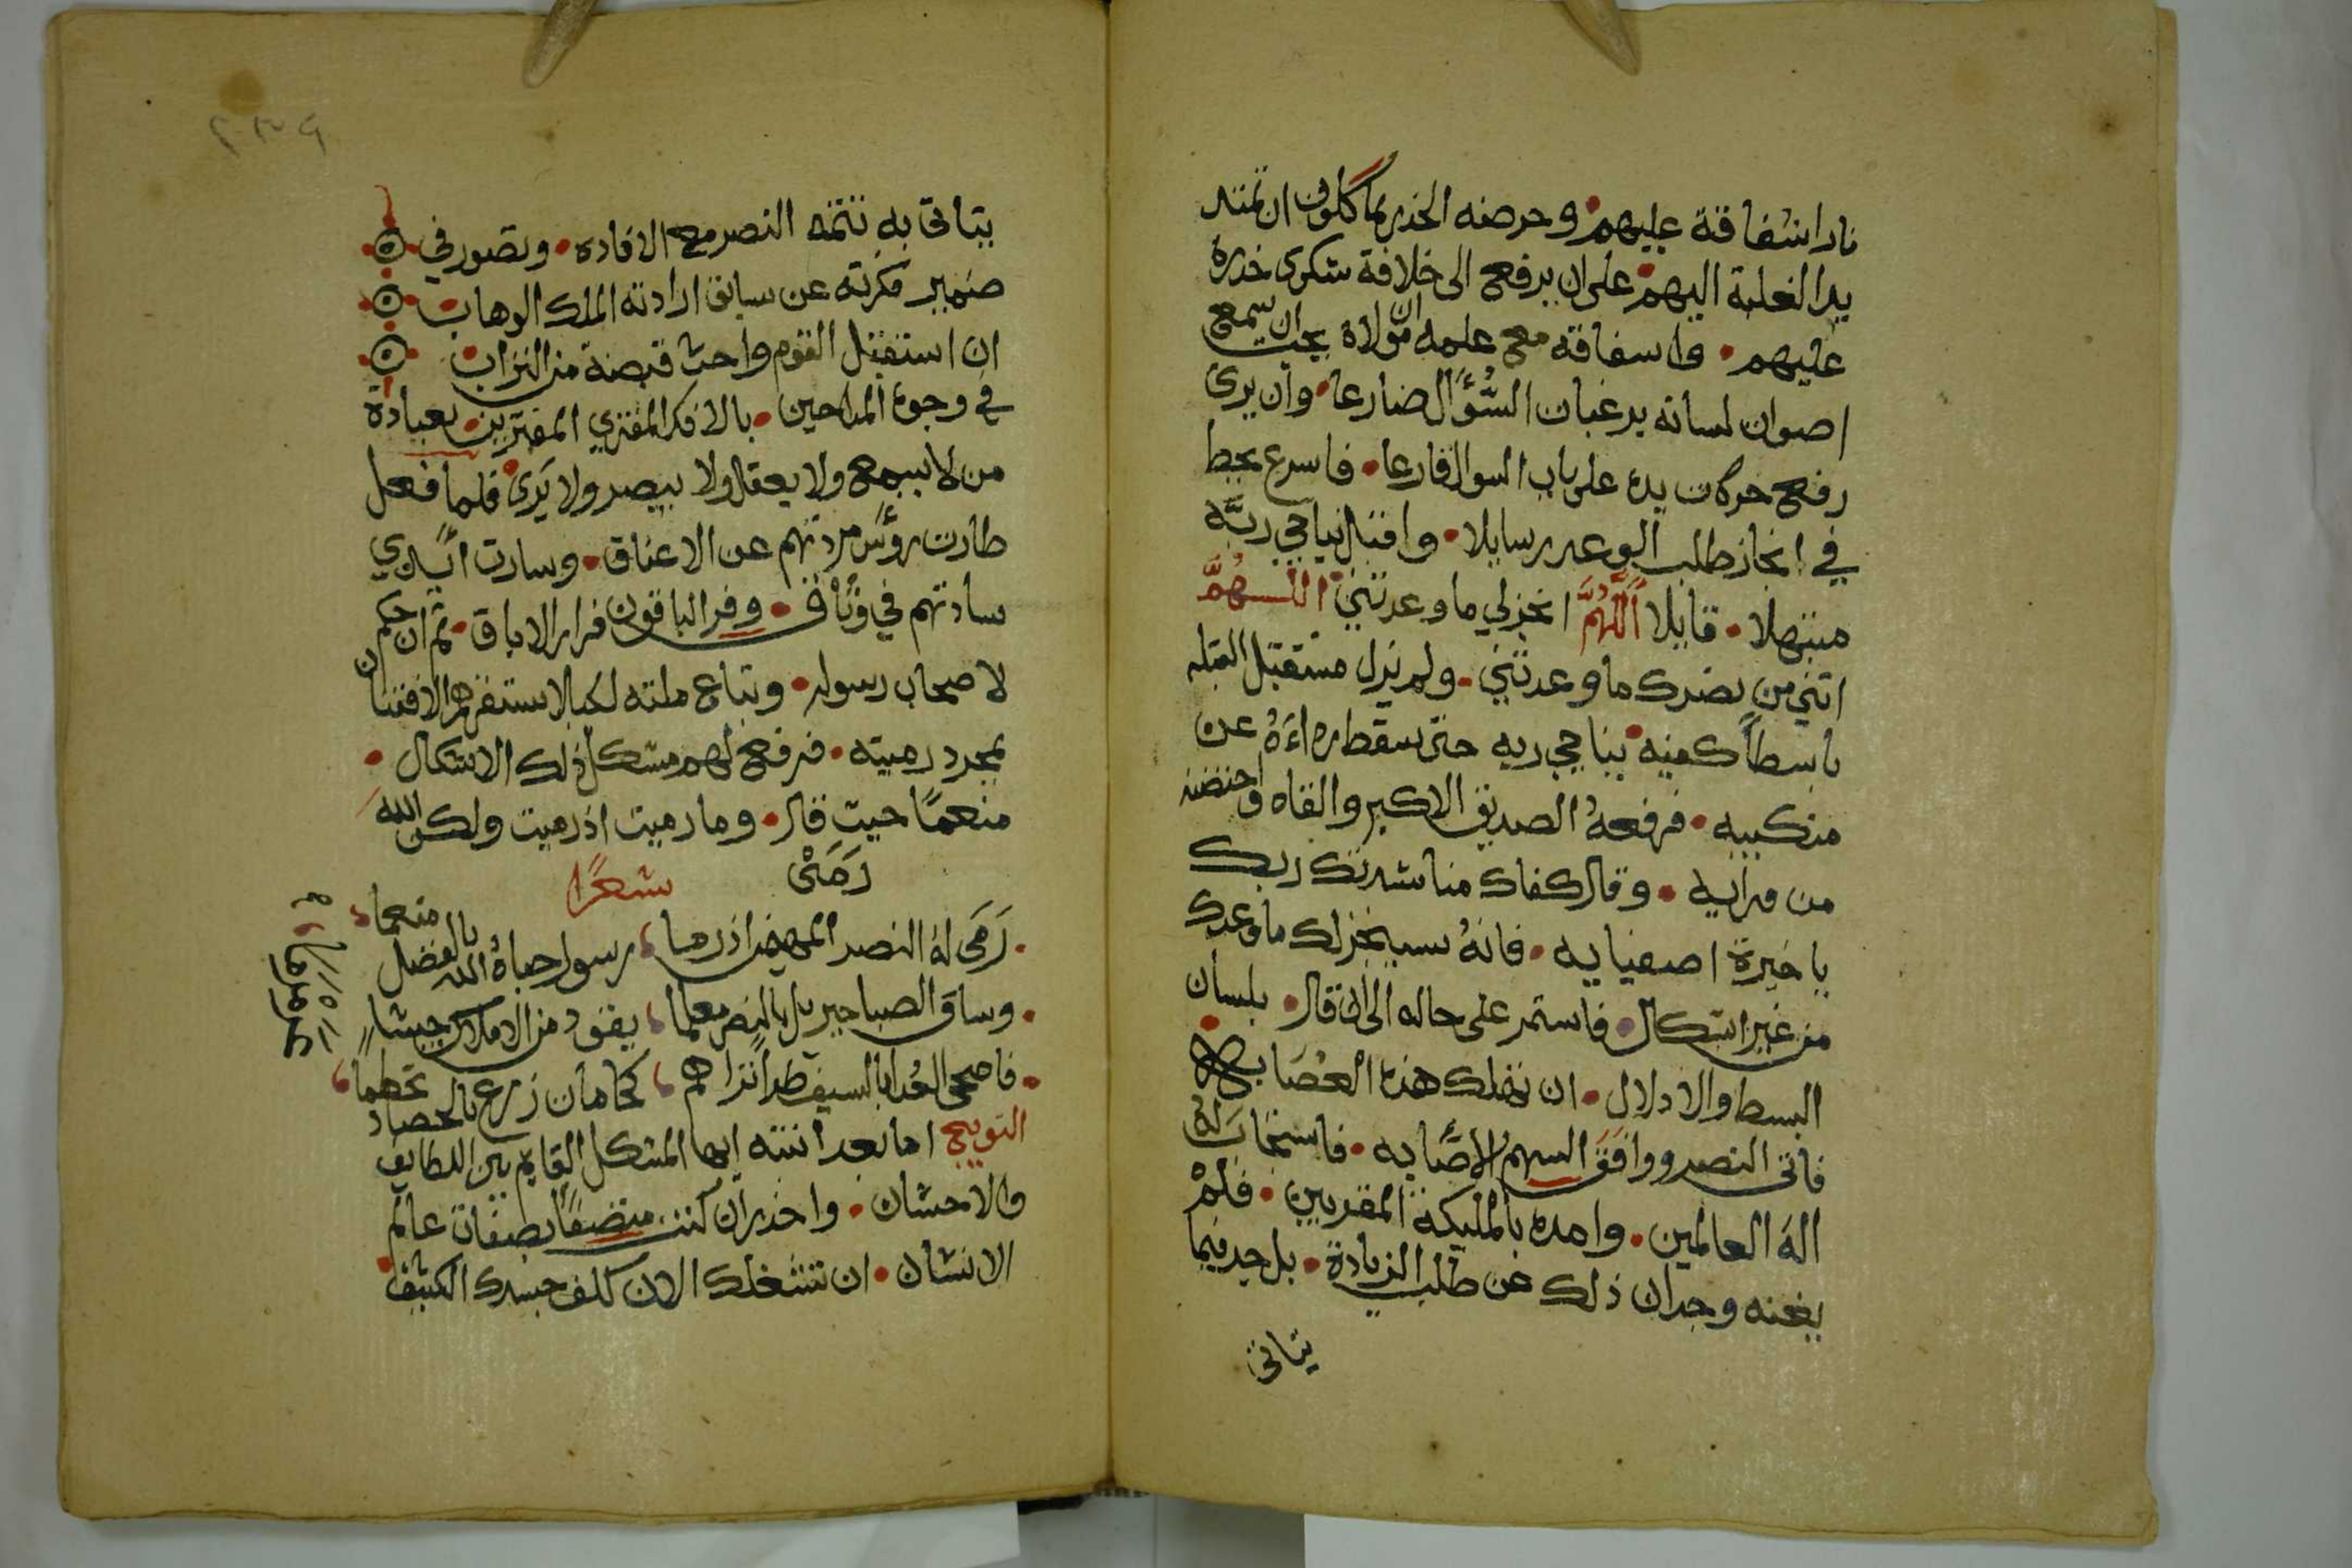 نار اشفاقة عليهم وحرضه الحذر بما كلوف ان تمتد
يد الغلبة اليهم على ان يرفع الى خلافة شكوى خدرة
عليهم واسفاقه مع علمه ان مولاه يحب ان يسمع
اصوان لسانه برغبات السؤال ضارعا وان يرى
رفع حركات يده على باب السوال قارعا فاسرع
في انجاز طلب الوعد سايلا واقبل يناجي ربه
مبتهلا قايلا اللهم انجزلي ما وعدتني اللهم
اتني من نصرك ما وعدتني ولم يزل مستقبل القبله
باسطا كفيه يناجي ربه حتى سقط رداءه عن
منكبيه فرفعه الصديق الاكبر والقاه واحتضنه
من ورائيه وقال كفاك مناشدتك ربك
يا خيرة اصفيايه فانه سينجزلك ما وعدك
من غير اشكال فاستمر على حاله الى ان قال بلسان
البسط والادلال ان تهلك هذه العصابه
فاتى النصر ووافق السهم الاصابه فاستجاب له
اله العالمين وامده بالمليكة المقربين فلم
يغنه وجدان ذلك عن طلب الزيادة بل جد فيما
يتاتى
يتاتى به تتمة النصر مع الافاده وتصور في
ضمير فكرته عن سابق ارادته الملك الوهاب
ان استقبل القوم واحث قبضة من التراب
في وجوه المداحين بالافك المفتري المفترين بعبادة
من لا يسمع ولا يعقل ولا يبصر ولا يرى فلما فعل
طارت رؤس مردتهم عن الاعناق وسارت ايدي
سادتهم في وثاق وفر الباقون فرار الاباق ثم ان حكم
لاصحاب رسوله وتباع ملته لكيلا يستفزهم الافتتان
بمجرد رميته فرفع لهم مشكل ذلك الاشكال
منعما حيث قال وما رميت اذ رميت ولكن الله
رمى شعرا
رمى له النصر المهيمن اذ رما رسول حباه الله بالفضل منعما
وساق الصبا جبريل بالنصر معلما يقود من الاملاك جيشا
فاضحى العدا بالسيف طرا تراهم كما مان زرع بالحصاد تحطما
التوبيخ اما بعد انتبه ايها المشكل القايم بين اللطايف
والاحشان واحذر ان كنت متصفا بصفات عالم
الانشان ان تشغلك الان كلف جسدك الكثيف